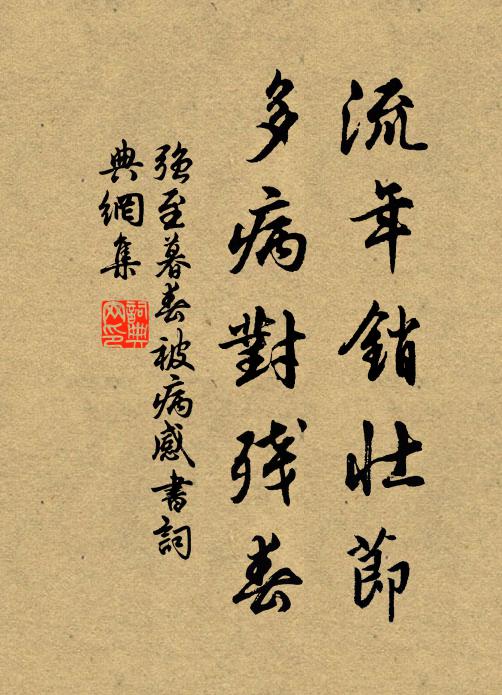 流年銷壯節
多病對殘春
強至暮春被病感書詞
典網集
詞典
網印